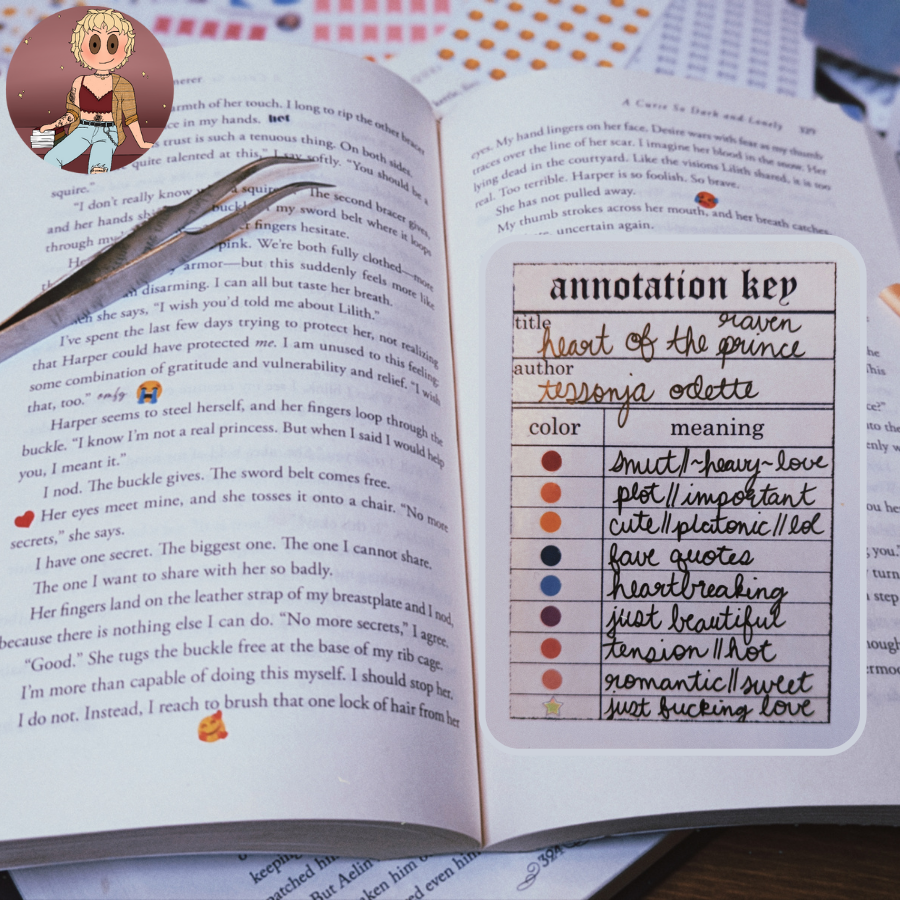 armth of her touch. I long to rip the other bracer
ce in my hands. hot
s trust is such a tenuous thing. On both sides.
quite talented at this," I say softly. "You should be a
squire."
"I don't really know a squire." The second bracer gives,
and her hands buckle my sword belt where it loops
through my fingers hesitate.
pink. We're both fully clothed—more
armor—but this suddenly feels more like
disarming. I can all but taste her breath.
she says, "I wish you'd told me about Lilith."
I've spent the last few days trying to protect her, not realizing
that Harper could have protected me. I am unused to this feeling,
some combination of gratitude and vulnerability and relief. "I wish
that, too."
Harper seems to steel herself, and her fingers loop through the
buckle. "I know I'm not a real princess. But when I said I would help
you, I meant it."
I nod. The buckle gives. The sword belt comes free.
Her eyes meet mine, and she tosses it onto a chair. "No more
secrets," she says.
I have one secret. The biggest one. The one I cannot share.
The one I want to share with her so badly.
Her fingers land on the leather strap of my breastplate and I nod,
because there is nothing else I can do. "No more secrets," I agree.
"Good." She tugs the buckle free at the base of my rib cage.
I'm more than capable of doing this myself. I should stop her.
I do not. Instead, I reach to brush that one lock of hair from her
A Curse So Dark and Lonely 329
eyes. My hand lingers on her face. Desire wars with fear as my thumb
traces over the line of her scar. I imagine her blood in the snow. Her
lying dead in the courtyard. Like the visions Lilith shared, it is too
real. Too terrible. Harper is so foolish. So brave.
She has not pulled away.
My thumb strokes across her mouth, and her breath catches
uncertain again.
annotation key
title
heart of the raven prince
author
tessonja odette
color meaning
smut//~heavy~love
plot//important
cute//platonic//lol
fave quotes
heartbreaking
just beautiful
tension//hot
romantic//sweet
just fucking love
keeping
But Aelin
aken him
ed even him
324